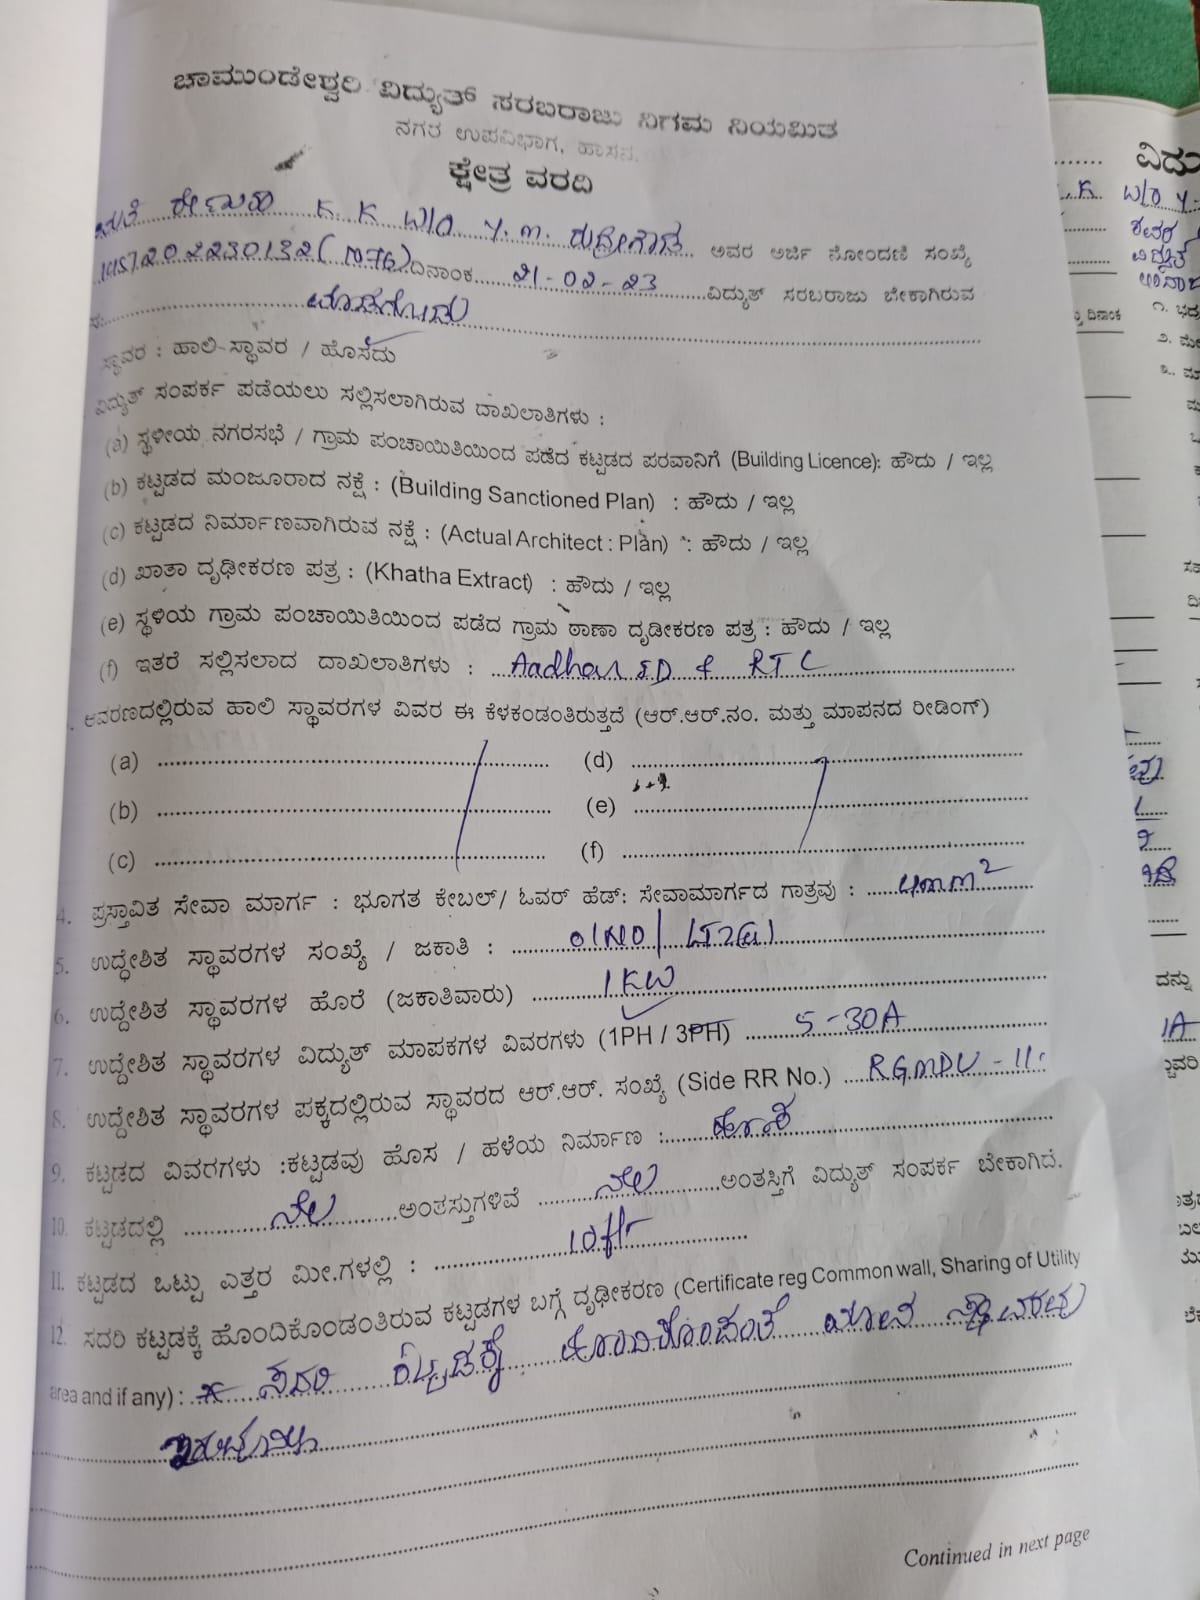 ಚಾಮುಂಡೇಶ್ವರಿ ವಿದ್ಯುತ್ ಸರಬರಾಜು ನಿಗಮ ನಿಯಮಿತ
ನಗರ ಉಪವಿಭಾಗ, ಹಾಸನ.
ಕ್ಷೇತ್ರ ವರದಿ
K. K W/O Y. M. ರುದ್ರೇಗೌಡ ಅವರ ಅರ್ಜಿ ನೋಂದಣಿ ಸಂಖ್ಯೆ
ದಿನಾಂಕ 21-02-23 ವಿದ್ಯುತ್ ಸರಬರಾಜು ಬೇಕಾಗಿರುವ
ಸ್ಥಾವರ : ಹಾಲಿ-ಸ್ಥಾವರ / ಹೊಸದು
ವಿದ್ಯುತ್ ಸಂಪರ್ಕ ಪಡೆಯಲು ಸಲ್ಲಿಸಲಾಗಿರುವ ದಾಖಲಾತಿಗಳು :
(a) ಸ್ಥಳೀಯ ನಗರಸಭೆ / ಗ್ರಾಮ ಪಂಚಾಯಿತಿಯಿಂದ ಪಡೆದ ಕಟ್ಟಡದ ಪರವಾನಿಗೆ (Building Licence): ಹೌದು / ಇಲ್ಲ
(b) ಕಟ್ಟಡದ ಮಂಜೂರಾದ ನಕ್ಷೆ : (Building Sanctioned Plan) : ಹೌದು / ಇಲ್ಲ
(c) ಕಟ್ಟಡದ ನಿರ್ಮಾಣವಾಗಿರುವ ನಕ್ಷೆ : (Actual Architect : Plan) : ಹೌದು / ಇಲ್ಲ
(d) ಖಾತಾ ದೃಢೀಕರಣ ಪತ್ರ : (Khatha Extract) : ಹೌದು / ಇಲ್ಲ
(e) ಸ್ಥಳಿಯ ಗ್ರಾಮ ಪಂಚಾಯಿತಿಯಿಂದ ಪಡೆದ ಗ್ರಾಮ ಠಾಣಾ ದೃಡೀಕರಣ ಪತ್ರ : ಹೌದು / ಇಲ್ಲ
(f) ಇತರೆ ಸಲ್ಲಿಸಲಾದ ದಾಖಲಾತಿಗಳು : Aadhar ID & RTC
ಆವರಣದಲ್ಲಿರುವ ಹಾಲಿ ಸ್ಥಾವರಗಳ ವಿವರ ಈ ಕೆಳಕಂಡಂತಿರುತ್ತದೆ (ಆರ್.ಆರ್.ನಂ. ಮತ್ತು ಮಾಪನದ ರೀಡಿಂಗ್)
(a) (d)
(b) (e)
(c) (f)
4. ಪ್ರಸ್ತಾವಿತ ಸೇವಾ ಮಾರ್ಗ : ಭೂಗತ ಕೇಬಲ್/ ಓವರ್ ಹೆಡ್: ಸೇವಾಮಾರ್ಗದ ಗಾತ್ರವು : 4mm²
5. ಉದ್ದೇಶಿತ ಸ್ಥಾವರಗಳ ಸಂಖ್ಯೆ / ಜಕಾತಿ : 01NO / LT2(a)
6. ಉದ್ದೇಶಿತ ಸ್ಥಾವರಗಳ ಹೊರೆ (ಜಕಾತಿವಾರು) 1KW
7. ಉದ್ದೇಶಿತ ಸ್ಥಾವರಗಳ ವಿದ್ಯುತ್ ಮಾಪಕಗಳ ವಿವರಗಳು (1PH / 3PH) 5-30A
8. ಉದ್ದೇಶಿತ ಸ್ಥಾವರಗಳ ಪಕ್ಕದಲ್ಲಿರುವ ಸ್ಥಾವರದ ಆರ್.ಆರ್. ಸಂಖ್ಯೆ (Side RR No.)
9. ಕಟ್ಟಡದ ವಿವರಗಳು :ಕಟ್ಟಡವು ಹೊಸ / ಹಳೆಯ ನಿರ್ಮಾಣ : ಹೊಸ
10. ಕಟ್ಟಡದಲ್ಲಿ ನೆಲ ಅಂತಸ್ತುಗಳಿವೆ ನೆಲ ಅಂತಸ್ತಿಗೆ ವಿದ್ಯುತ್ ಸಂಪರ್ಕ ಬೇಕಾಗಿದೆ.
11. ಕಟ್ಟಡದ ಒಟ್ಟು ಎತ್ತರ ಮೀ.ಗಳಲ್ಲಿ : 10ft
12. ಸದರಿ ಕಟ್ಟಡಕ್ಕೆ ಹೊಂದಿಕೊಂಡಂತಿರುವ ಕಟ್ಟಡಗಳ ಬಗ್ಗೆ ದೃಢೀಕರಣ (Certificate reg Common wall, Sharing of Utility
area and if any) : ಸದರಿ ಕಟ್ಟಡಕ್ಕೆ ಹೊಂದಿಕೊಂಡಂತೆ ಸ್ಥಾವರಳು
Continued in next page